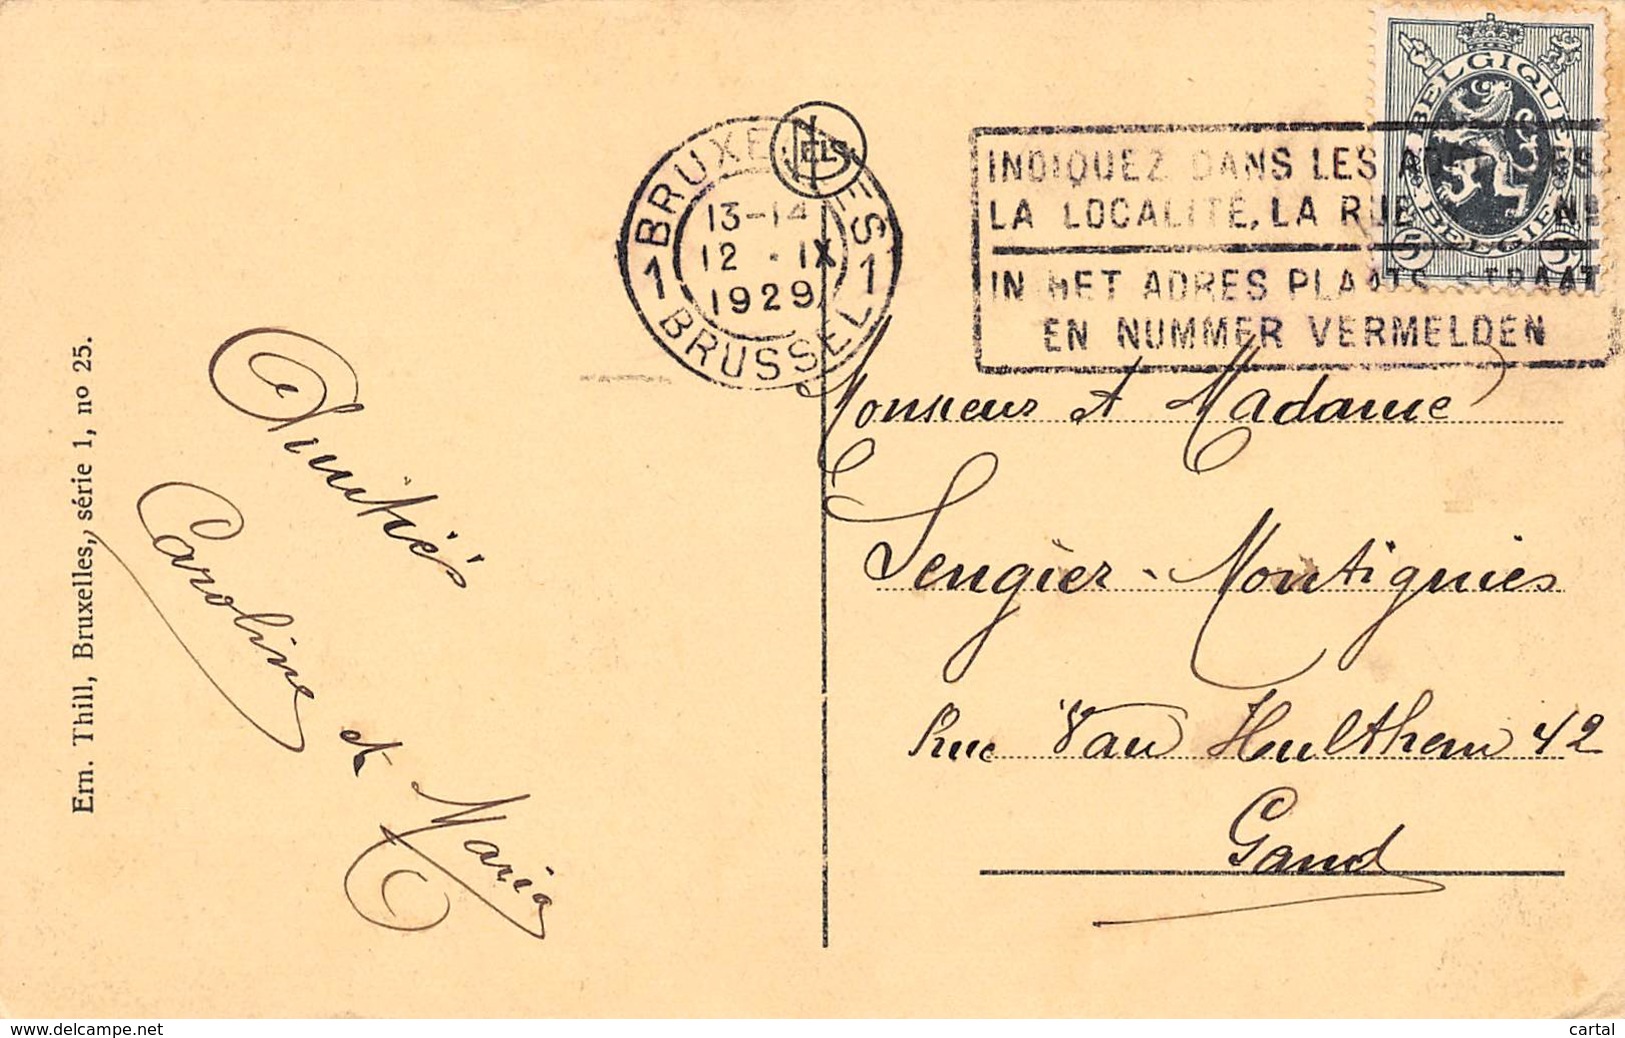 Ern. Thill, Bruxelles, série 1, nº 25.
Amitiés
Caroline
et Maria
NELS
1 BRUXELLES 1
13-14
12 . IX
1929
BRUSSEL
INDIQUEZ DANS LES ADRESSES
LA LOCALITÉ, LA RUE Nº
IN HET ADRES PLAATS STRAAT
EN NUMMER VERMELDEN
BELGIQUE
BELGIE
5 5
Monsieur et Madame
Sengier-Montignies
Rue Van Hulthem 42
Gand
www.delcampe.net
cartal